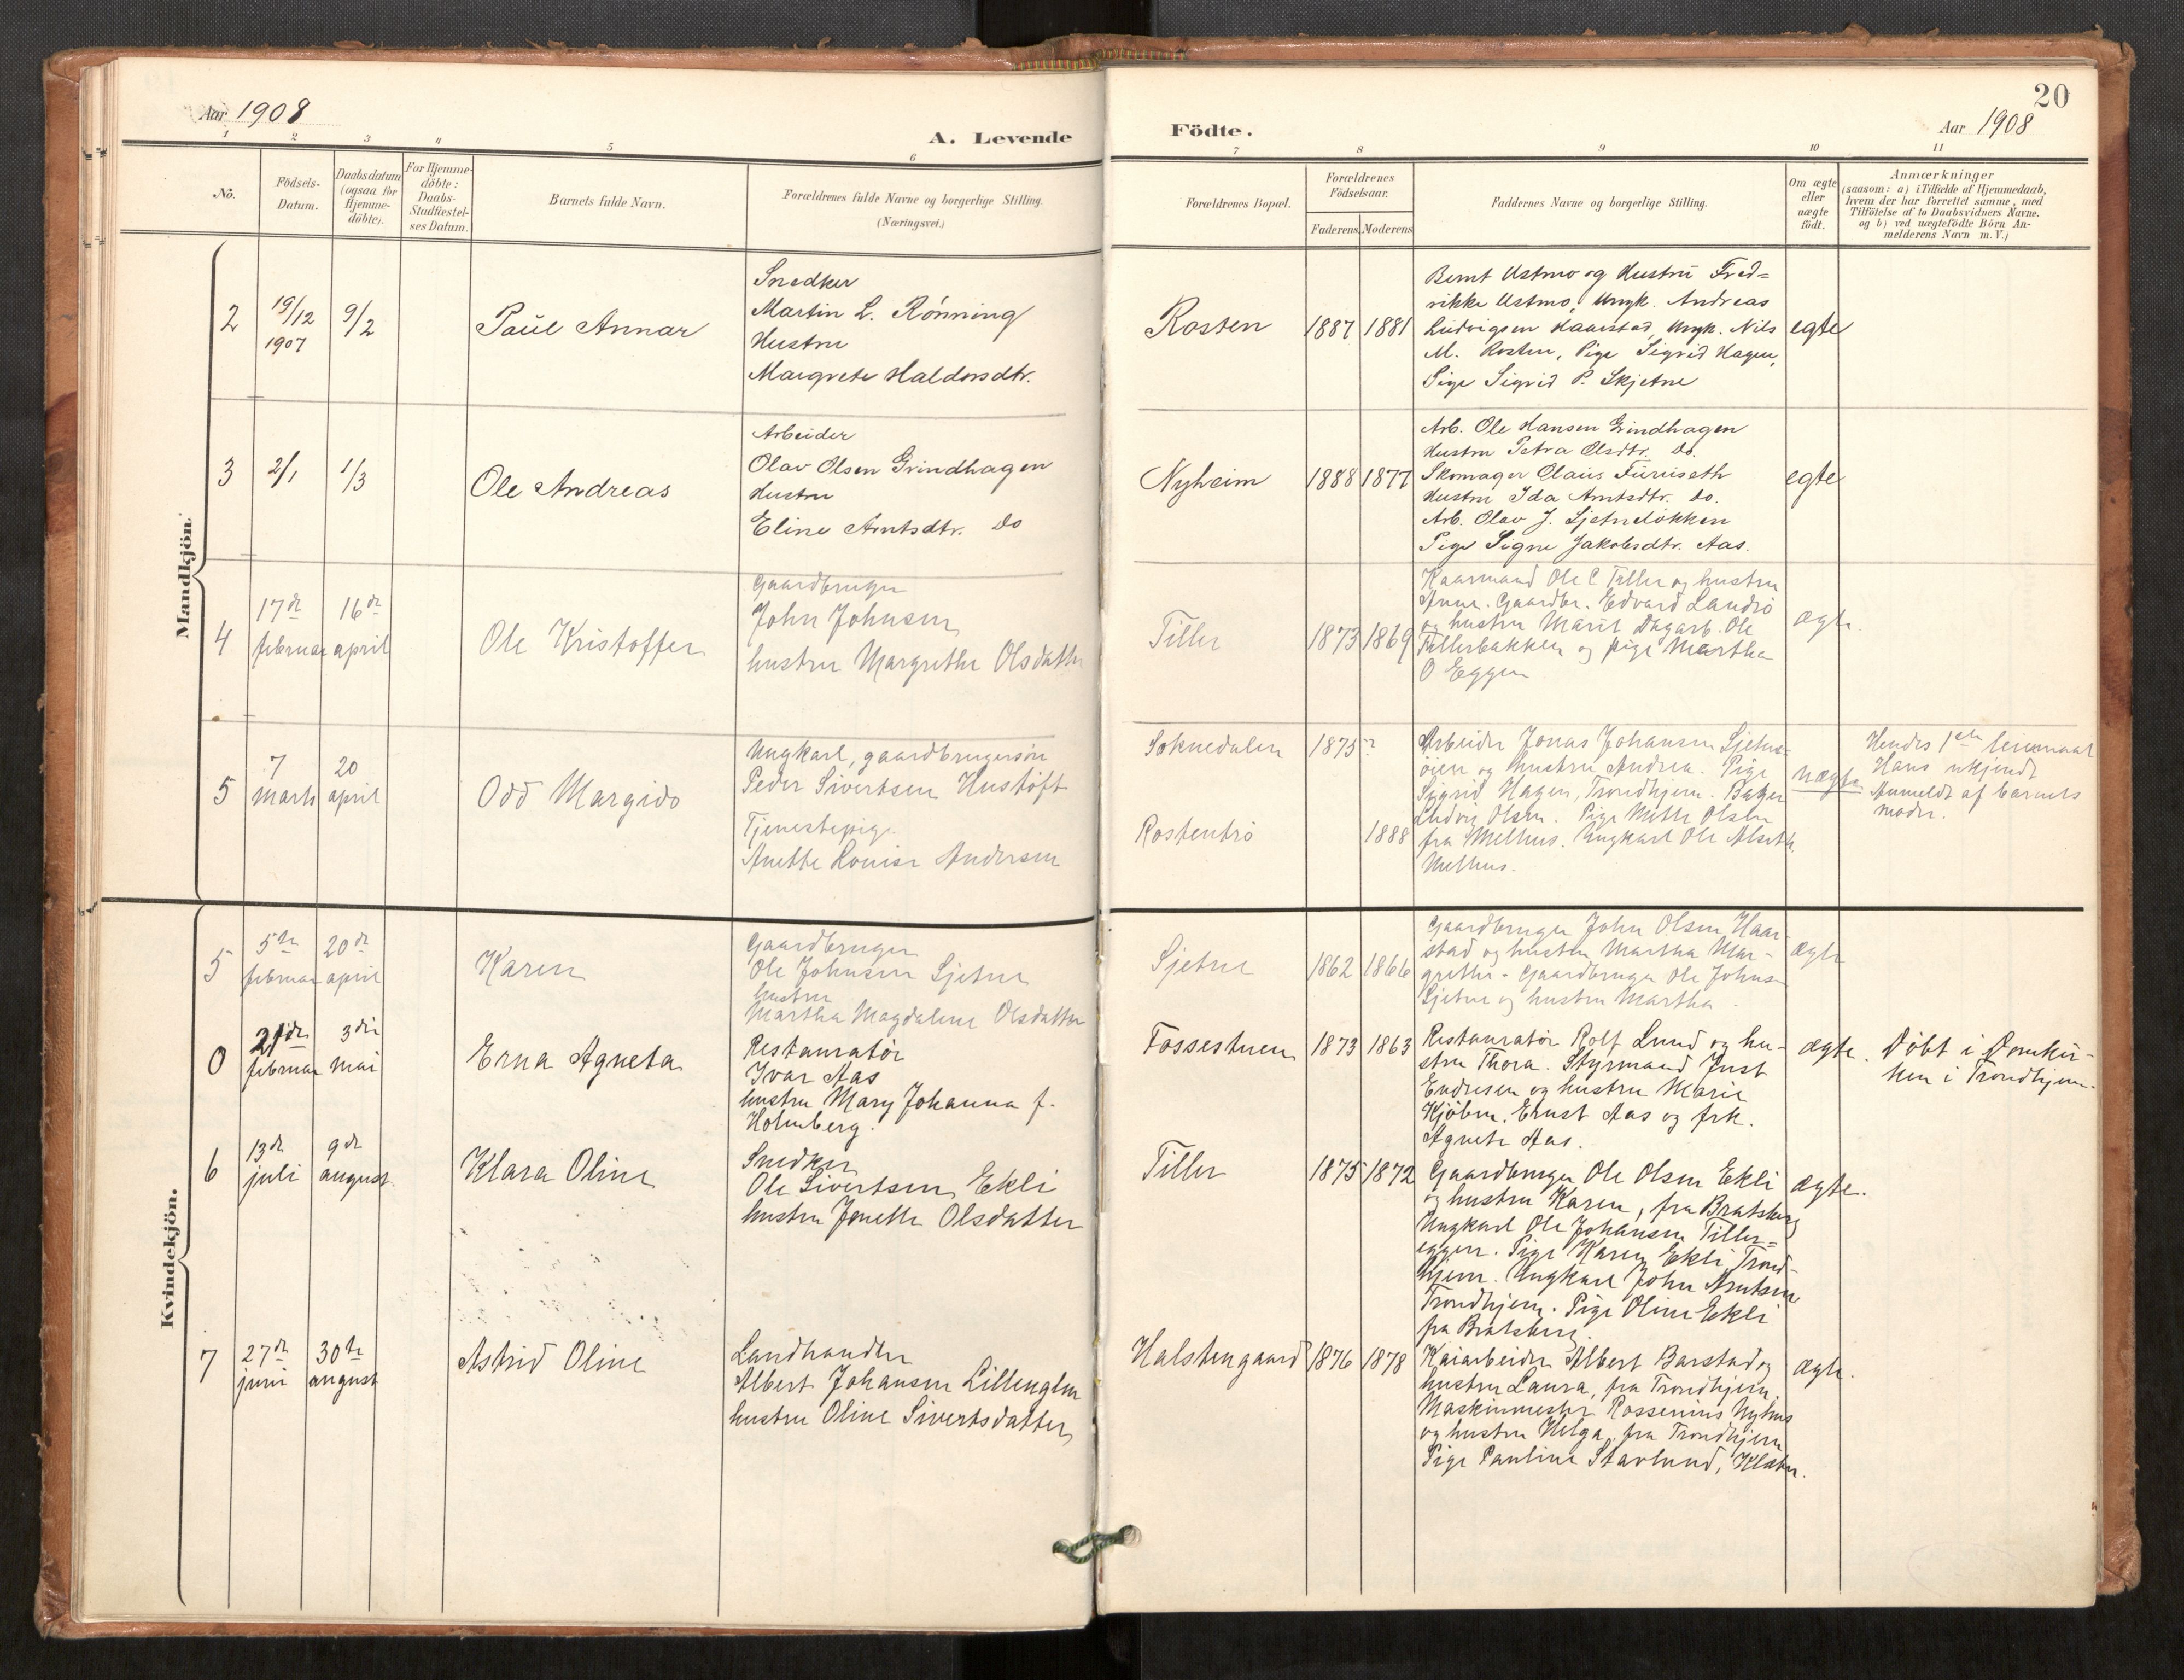 Aar 1908
A. Levende
Födte.
Aar 1908
20
1 2 3 4 5 6 7 8 9 10 11
No.
Födsels-
Datum.
Daabsdatum
(ogsaa for
Hjemme-
döbte).
For Hjemme-
döbte:
Daabs-
Stadfæstel-
ses Datum.
Barnets fulde Navn.
Forældrenes fulde Navne og borgerlige Stilling.
(Næringsvei.)
Forældrenes Bopæl.
Forældrenes
Födselsaar.
Faderens. Moderens
Faddernes Navne og borgerlige Stilling.
Om ægte
eller
uægte
födt.
Anmærkninger
(saasom: a) i Tilfælde af Hjemmedaab,
hvem der har forrettet samme, med
Tilföielse af to Daabsvidners Navne.
og b) ved uægtefödte Börn An-
melderens Navn m. V.)
Mandkjön.
2
19/12
1907
9/2
Paul Annar
Snedker
Martin L. Rønning
Hustru
Margrete Haldorsdtr.
Rosten
1887
1881
Bernt Ustmo og Hustru Fred=
rikke Ustmo, Ungk. Andreas
Ludvigsen Haarstad, Ungk. Nils
M. Rosten, Pige Sigrid Hagen,
Pige Sigrid P. Skjetne
egte
3
2/1
1/3
Ole Andreas
Arbeider
Olav Olsen Grindhagen
Hustru
Eline Arntsdtr. Do
Nyheim
1888
1877
Arb. Ole Hansen Grindhagen
Hustru Petra Olsdtr. Do.
Skomager Olaus Furuseth
Hustru Ida Arntsdtr. Do.
Arb. Olav J. Sjetneløkken
Pige Signe Jakobsdtr. Aas.
egte
4
17de
februar
16de
april
Ole Kristoffer
Gaardbruger
John Johnsen
hustru Margrethe Olsdatter
Tiller
1873
1869
Kaarmand Ole C Tiller og hustru
Anne. Gaardbr. Edvard Sandrø
og hustru Marit Dagarb. Ole
Tillerbakken og pige Martha
O Eggen
ægte.
5
7
marts
20
april
Odd Margido
Ungkarl, gaardbrugersøn
Peder Sivertsen Hustøft
Tjenestepige
Anette Lovise Andersen
Soknedalen
1875?
Rostentrø
1888
Arbeider Jonas Johansen Sjetne-
øien og hustru Andrea. Pige
Sigrid Hagen, Trondhjem. Bager
Ludvig Olsen. Pige Mette Olsen
fra Melhus. Ungkarl Ole Alseth.
Melhus.
uægte
Hendes 1ste leiermaal
Hans ukjendt
Anmeldt af barnets
moder.
Kvindekjön.
5
5te
februar
20de
april
Karen
Gaardbruger
Ole Johnsen Sjetne
hustru
Martha Magdalene Olsdatter
Sjetne
1862
1866
Gaardbruger John Olsen Haar-
stad og hustru Martha Mar-
grethe - Gaardbruger Ole Johns
Sjetne og hustru Martha
ægte
0
21de
februar
3die
mai
Erna Agneta
Restauratør
Ivar Aas
hustru Mary Johanna f.
Holmberg.
Fossestuen
1873
1863
Restauratør Rolf Lund og hu-
stru Thora. Styrmand Just
Endresen og hustru Marie
Kjøbm. Ernst Aas og frk.
Agnete Aas.
ægte.
Døbt i Domkir-
ken i Trondhjem.
6
13de
juli
9de
august.
Klara Oline
Snedker
Ole Sivertsen Ekli
hustru Jonette Olsdatter
Tiller
1875
1872
Gaardbruger Ole Olsen Ekli
og hustru Karen, fra Bratsberg
Ungkarl Ole Johansen Tiller=
eggen. Pige Karen Ekli Trond-
hjem. Ungkarl John Arntsen
Trondhjem. Pige Oline Ekli
fra Bratsberg.
ægte.
7
27de
juni
30te
august
Astrid Oline
Landhandler
Albert Johansen Lillenglen
hustru Oline Sivertsdatter
Halstengaard
1876
1878
Kaiarbeider Albert Barstad og
hustru Laura, fra Trondhjem.
Maskinmester Rossenius Nyhus
og hustru Helga, fra Trondhjem
Pige Pauline Stavlund, Klæbu.
ægte.